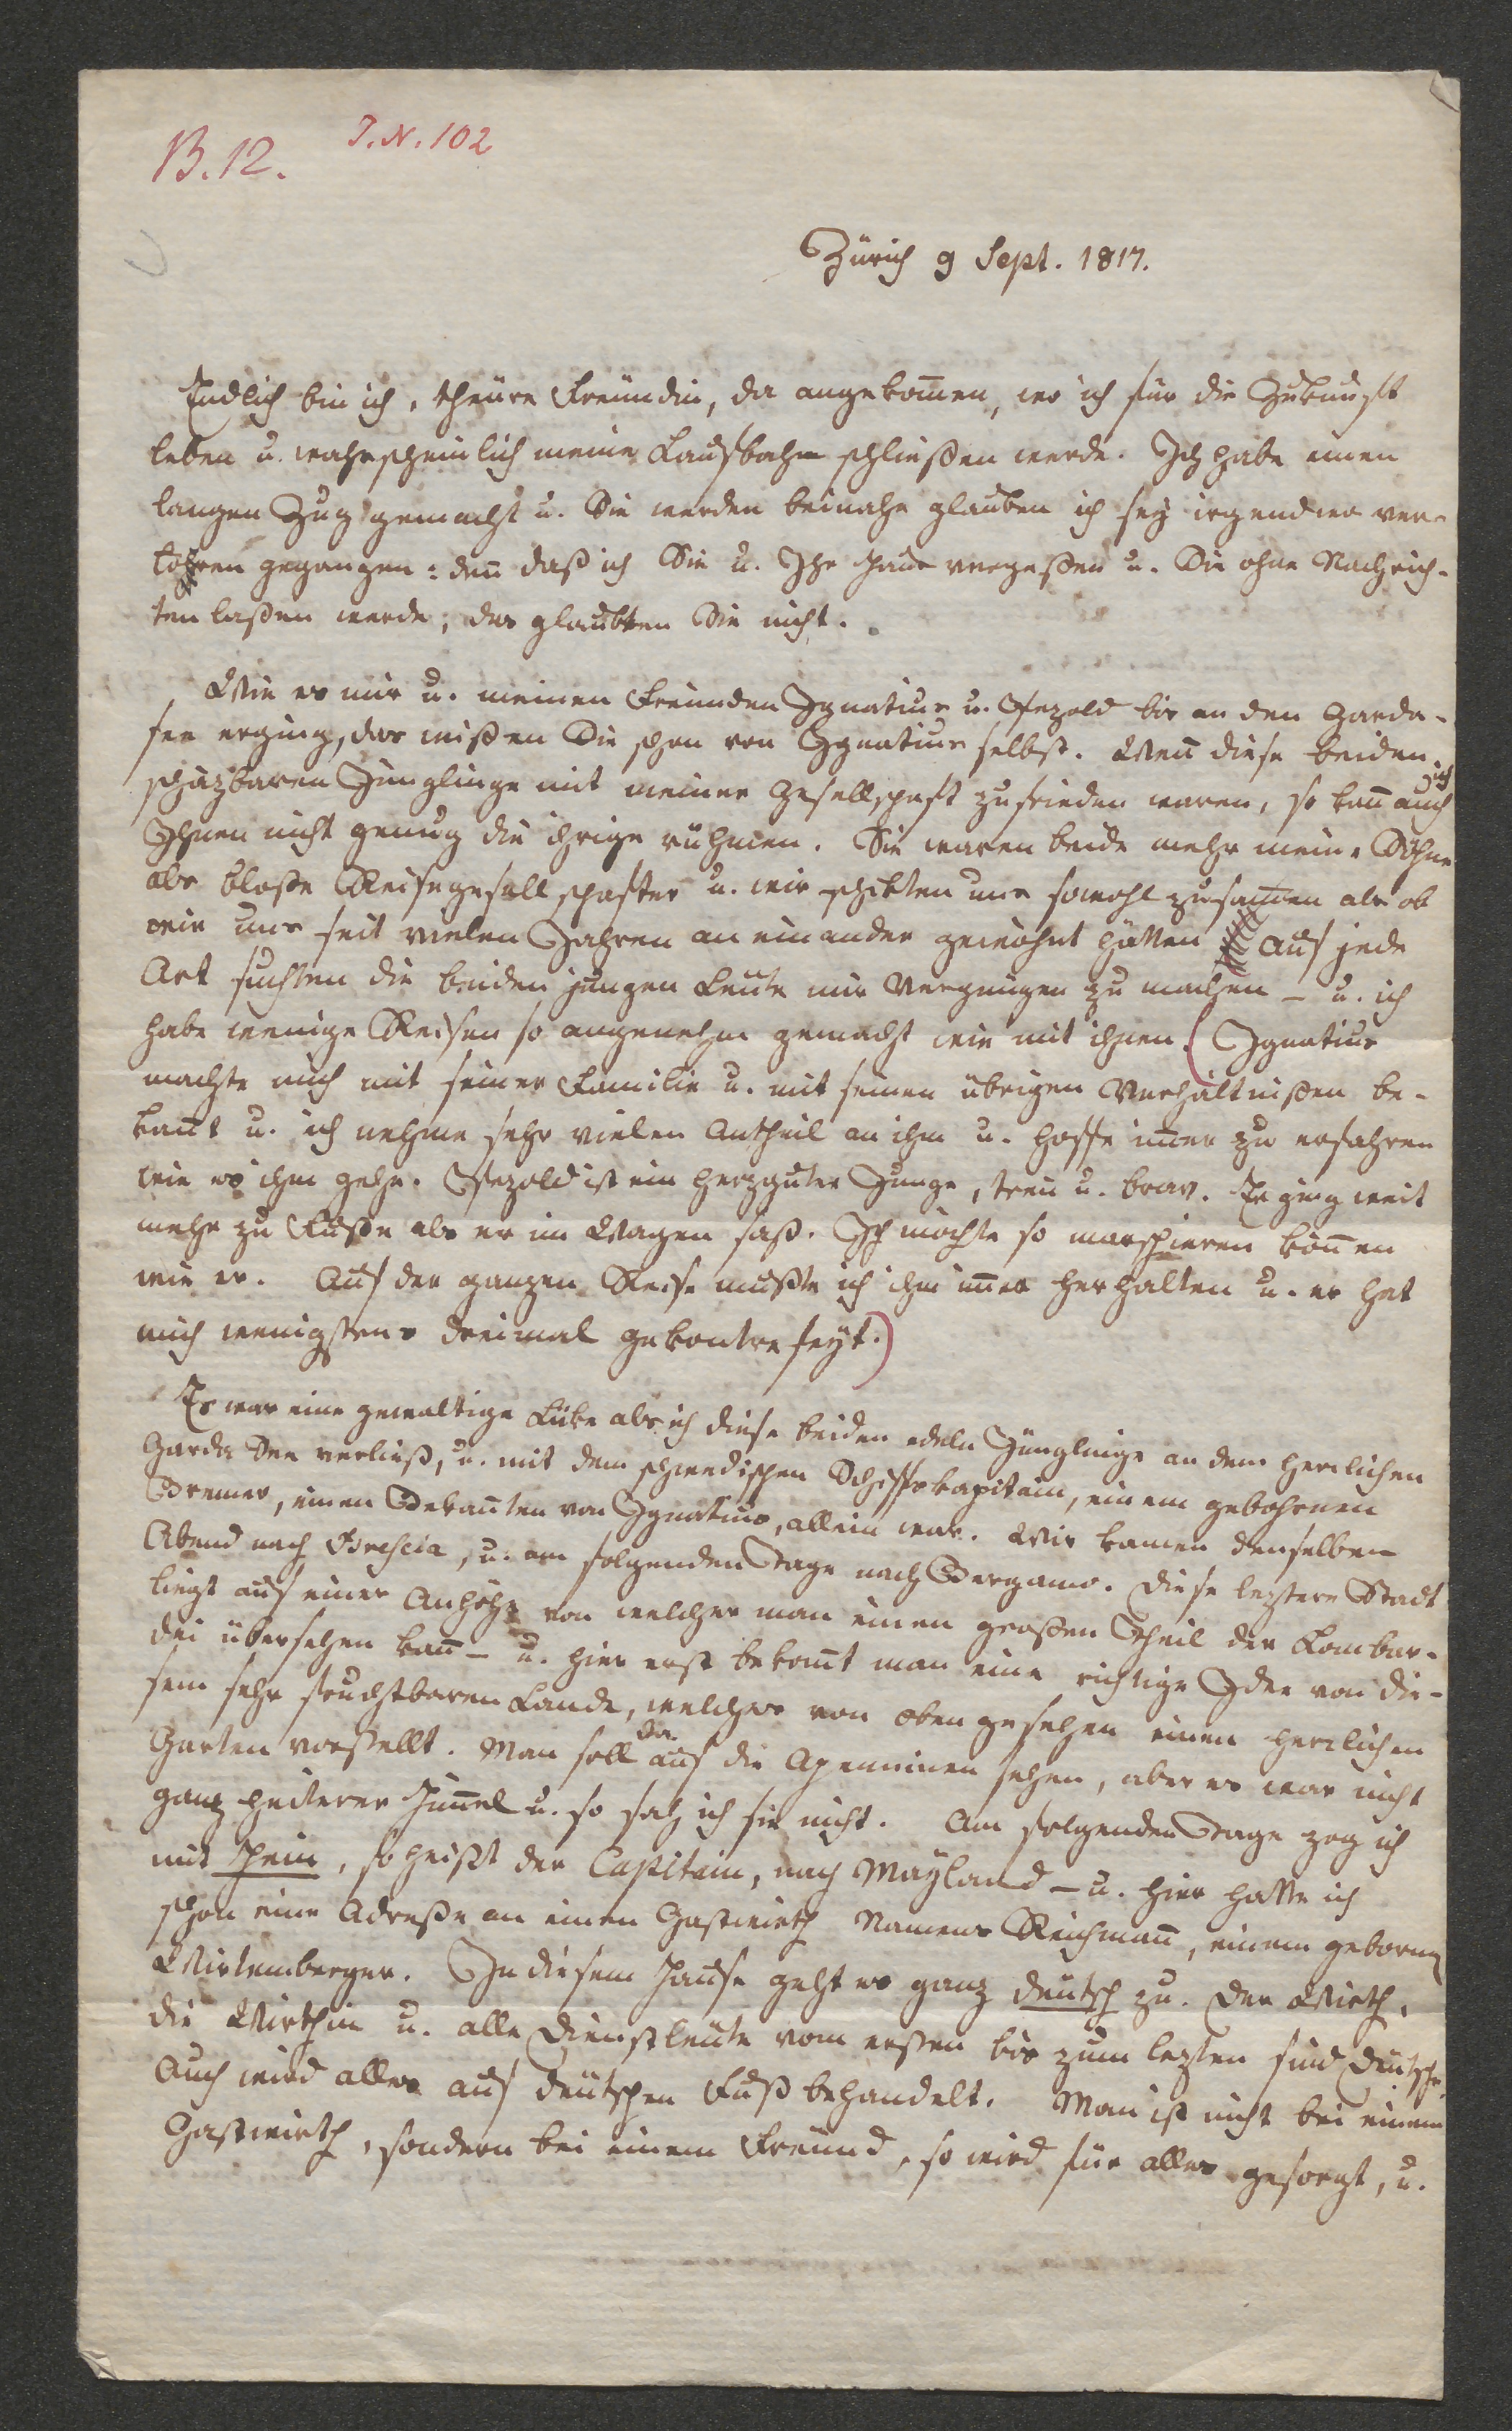 B. 12. J. N. 102
Zürich 9 Sept. 1817.
Endlich bin ich, theüre Freündin, da angekom̄en, wo ich für die Zukunft
leben u. wahrscheinlich meine Laufbahn schließen werde. Ich habe einen
langen Zug gemacht u. Sie werden beinahe glauben ich sey irgendwo ver-
lohren gegangen: den̄ daß ich Sie u. Ihr Haus vergeßen u. Sie ohne Nachrich-
ten laßen werde, das glaubten Sie nicht.
Wie es mir u. meinen Freünden Ignatius u. Pezold bis an den Garda-
see erging, das wißen Sie schon von Ignatius selbst. Wen̄ diese beiden
schäzbaren Jünglinge mit meiner Gesellschaft zufrieden waren, so kan̄ auch ich
Ihnen nicht genug die ihrige rühmen. Sie waren beide mehr meine Söhne
als bloße Reisegesellschafter u. wir schikten uns sowohl zusam̄en als ob
wir uns seit vielen Jahren an einander gewöhnt hätten Auf jede
Art suchten die beiden jungen Leüte mir Vergnügen zu machen – u. ich
habe wenige Reisen so angenehm gemacht wie mit ihnen. (Ignatius
machte mich mit seiner Familie u. mit seinen übrigen Verhältnißen be-
kan̄t u. ich nehme sehr vielen Antheil an ihm u. hoffe im̄er zu erfahren
wie es ihm gehe. Pezold ist ein herzguter Junge, treü u. brav. Er ging weit
mehr zu Fuße als er im Wagen saß. Ich möchte so marschieren kön̄en
wie er. Auf der ganzen Reise mußte ich ihm im̄er herhalten u. er hat
mich wenigstens dreimal gekontrefeyt.)
Es war eine gewaltige Lüke als ich diese beiden edeln Jünglinge an dem herrlichen
Garda See verließ, u. mit dem schwedischen Schiffskapitain, einem gebohrnen
Bremer, einen Bekan̄ten von Ignatius, allein war. Wir kamen denselben
Abend nach Brescia, u. am folgenden Tage nach Bergamo. Diese leztere Stadt
liegt auf einer Anhöhe von welcher man einen großen Theil der Lombar-
dei übersehen kan̄ – u. hier erst bekom̄t man eine richtige Idee von die-
sem sehr fruchtbaren Lande, welches von oben gesehen einen herrlichen
Garten vorstellt. Man soll da auf die Apenninen sehen, aber es war nicht
ganz heiterer Him̄el u. so sah ich sie nicht. Am folgenden Tage zog ich
mit Hein, so heißt der Capitain, nach Mayland – u. hier hatte ich
schon eine Adreße an einen Gastwirth Namens Reichman̄, einem gebornen
Wirtemberger. In diesem Hause geht es ganz deütsch zu. Der Wirth,
die Wirthin u. alle Dienstleüte vom ersten bis zum lezten sind Deütsche.
Auch wird alles auf deütschen Fuß behandelt. Man ist nicht bei einem
Gastwirth, sondern bei einem Freünd, so wird für alles gesorgt, u.